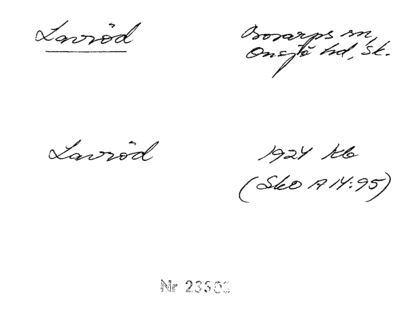 Lavröd
Bosarps sn,
Onsjö hd, Sk.
Lavröd
1924 Kb
(SkO A 14:95)
Nr